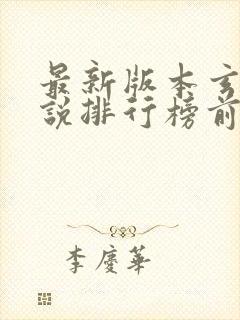 最新版本玄
說排行榜前
李慶華